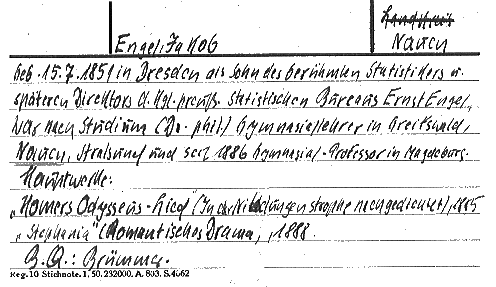 Landshut
Engel, Jakob
Nancy
Geb. 15.7.1851 in Dresden als Sohn des berühmten Statistikers u.
späteren Direktors d. Kgl. preuß. statistischen Bureaus Ernst Engel,
war nach Studium (Dr. phil) Gymnasiallehrer in Greifswald,
Nancy, Stralsund und seit 1886 Gymnasial-Professor in Magdeburg.
Hauptwerke:
„Homers Odysseus-Lied" (In der Nibelungenstrophe nachgedichtet), 1885
„Stephania" (Romantisches Drama), 1888.
B.Q.: Brümmer.
Reg. 10 Stichnote. 1, 50. 232000. A. 803. S. 4662